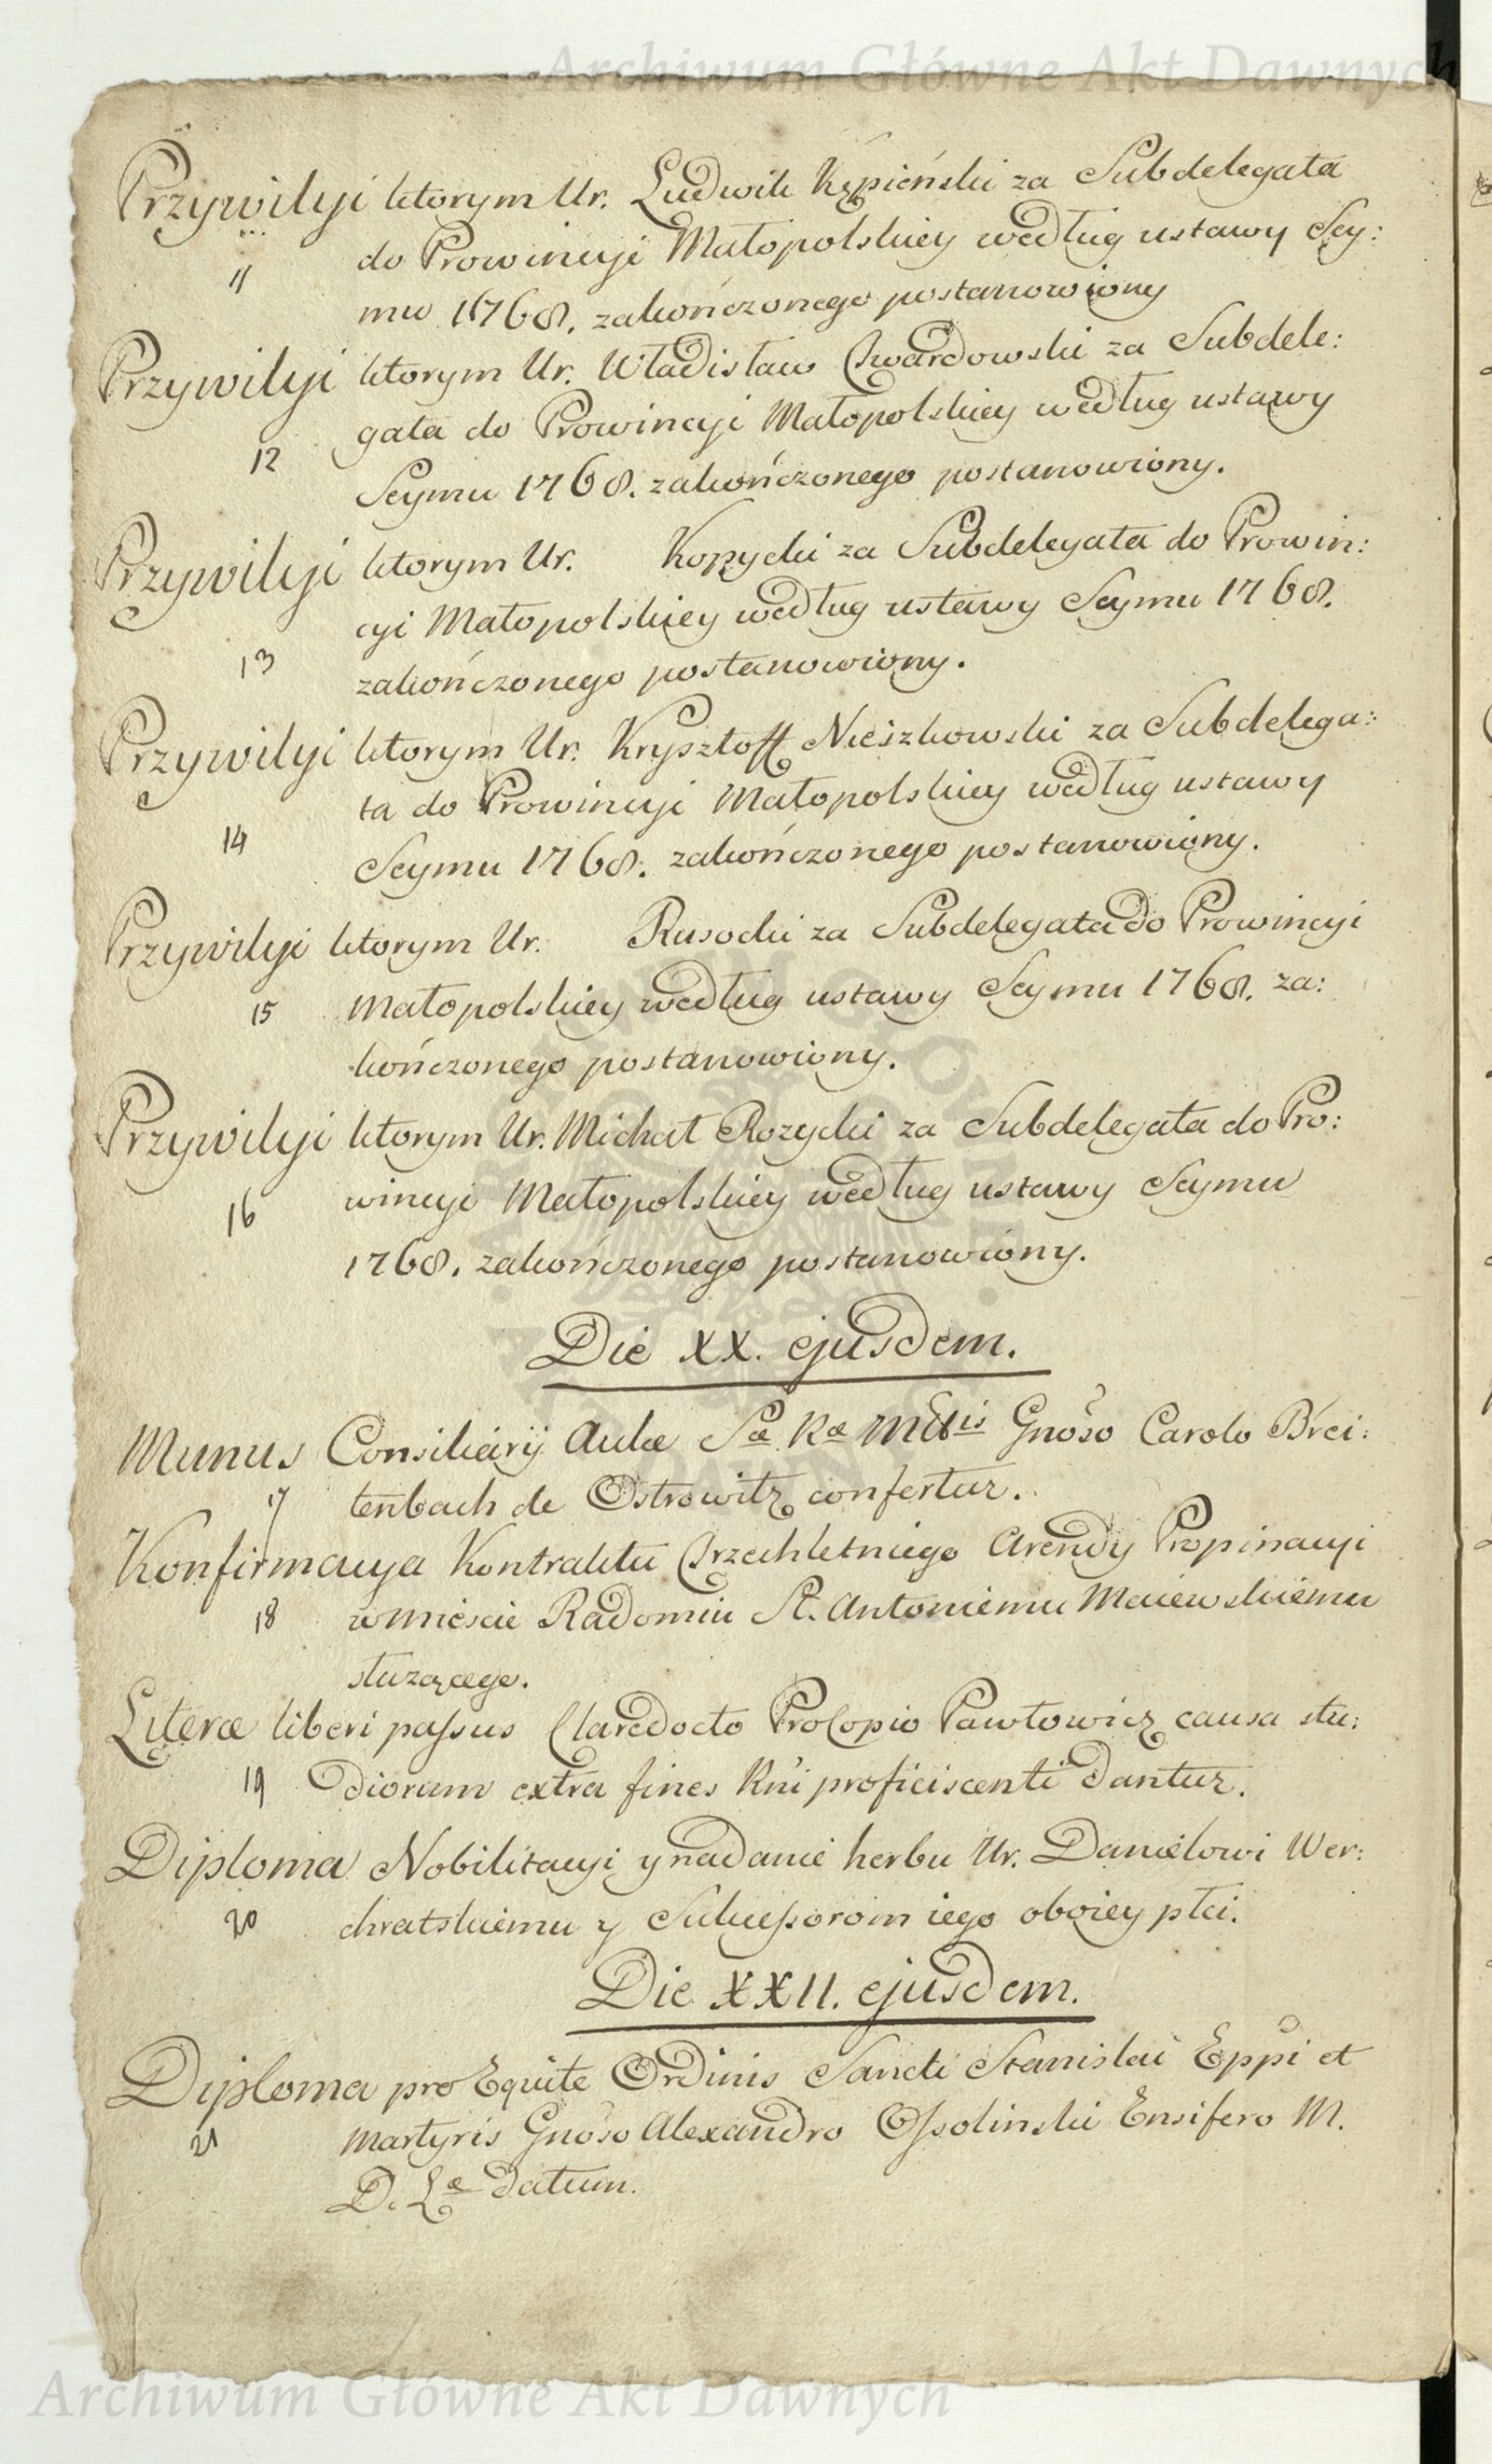 Archiwum Główne Akt Dawnych
Przywilyi ktorym Ur. Ludwik Kępiński za Subdelegata
11 do Prowincyi Małopolskiey według ustawy Sey:
mu 1768. zakończonego postanowiony
Przywilyi ktorym Ur. Władisław Twardowski za Subdele:
gata do Prowincyi Małopolskiey według ustawy
12 Seymu 1768. zakończonego postanowiony.
Przywilyi ktorym Ur. Kopycki za Subdelegata do Prowin:
cyi Małopolskiey według ustawy Seymu 1768.
13 zakończonego postanowiony.
Przywilyi ktorym Ur. Krysztoff Nieszkowski za Subdelega:
ta do Prowincyi Małopolskiey według ustawy
14 Seymu 1768. zakończonego postanowiony.
Przywilyi ktorym Ur. Rusocki za Subdelegata do Prowincyi
15 Małopolskiey według ustawy Seymu 1768. za:
kończonego postanowiony.
Przywilyi ktorym Ur. Michał Rozycki za Subdelegata do Pro:
16 wincyi Małopolskiey według ustawy Seymu
1768. zakończonego postanowiony.
Die XX. ejusdem.
Munus Consiliarij Aulæ Sæ Ræ Mttis Gnoso Carolo Brei:
17 tenbach de Ostrowitz confertur.
Konfirmacya Kontraktu Trzechletniego Arendy Propinacyi
18 w mieście Radomiu St. Antoniemu Maiewskiemu
służącego.
Literæ liberi passus Claredocto Procopio Pawłowicz causa stu:
19 diorum extra fines Rni proficiscenti dantur.
Diploma Nobilitacyi y nadanie herbu Ur. Danielowi Wer:
20 chratskiemu y Sukcessorom iego oboiey płci.
Die XXII. ejusdem.
Diploma pro Equite Ordinis Sancti Stanislai Eppi et
21 Martyris Gnoso Alexandro Ossolinski Ensifero M.
D. Læ datum.
Archiwum Główne Akt Dawnych